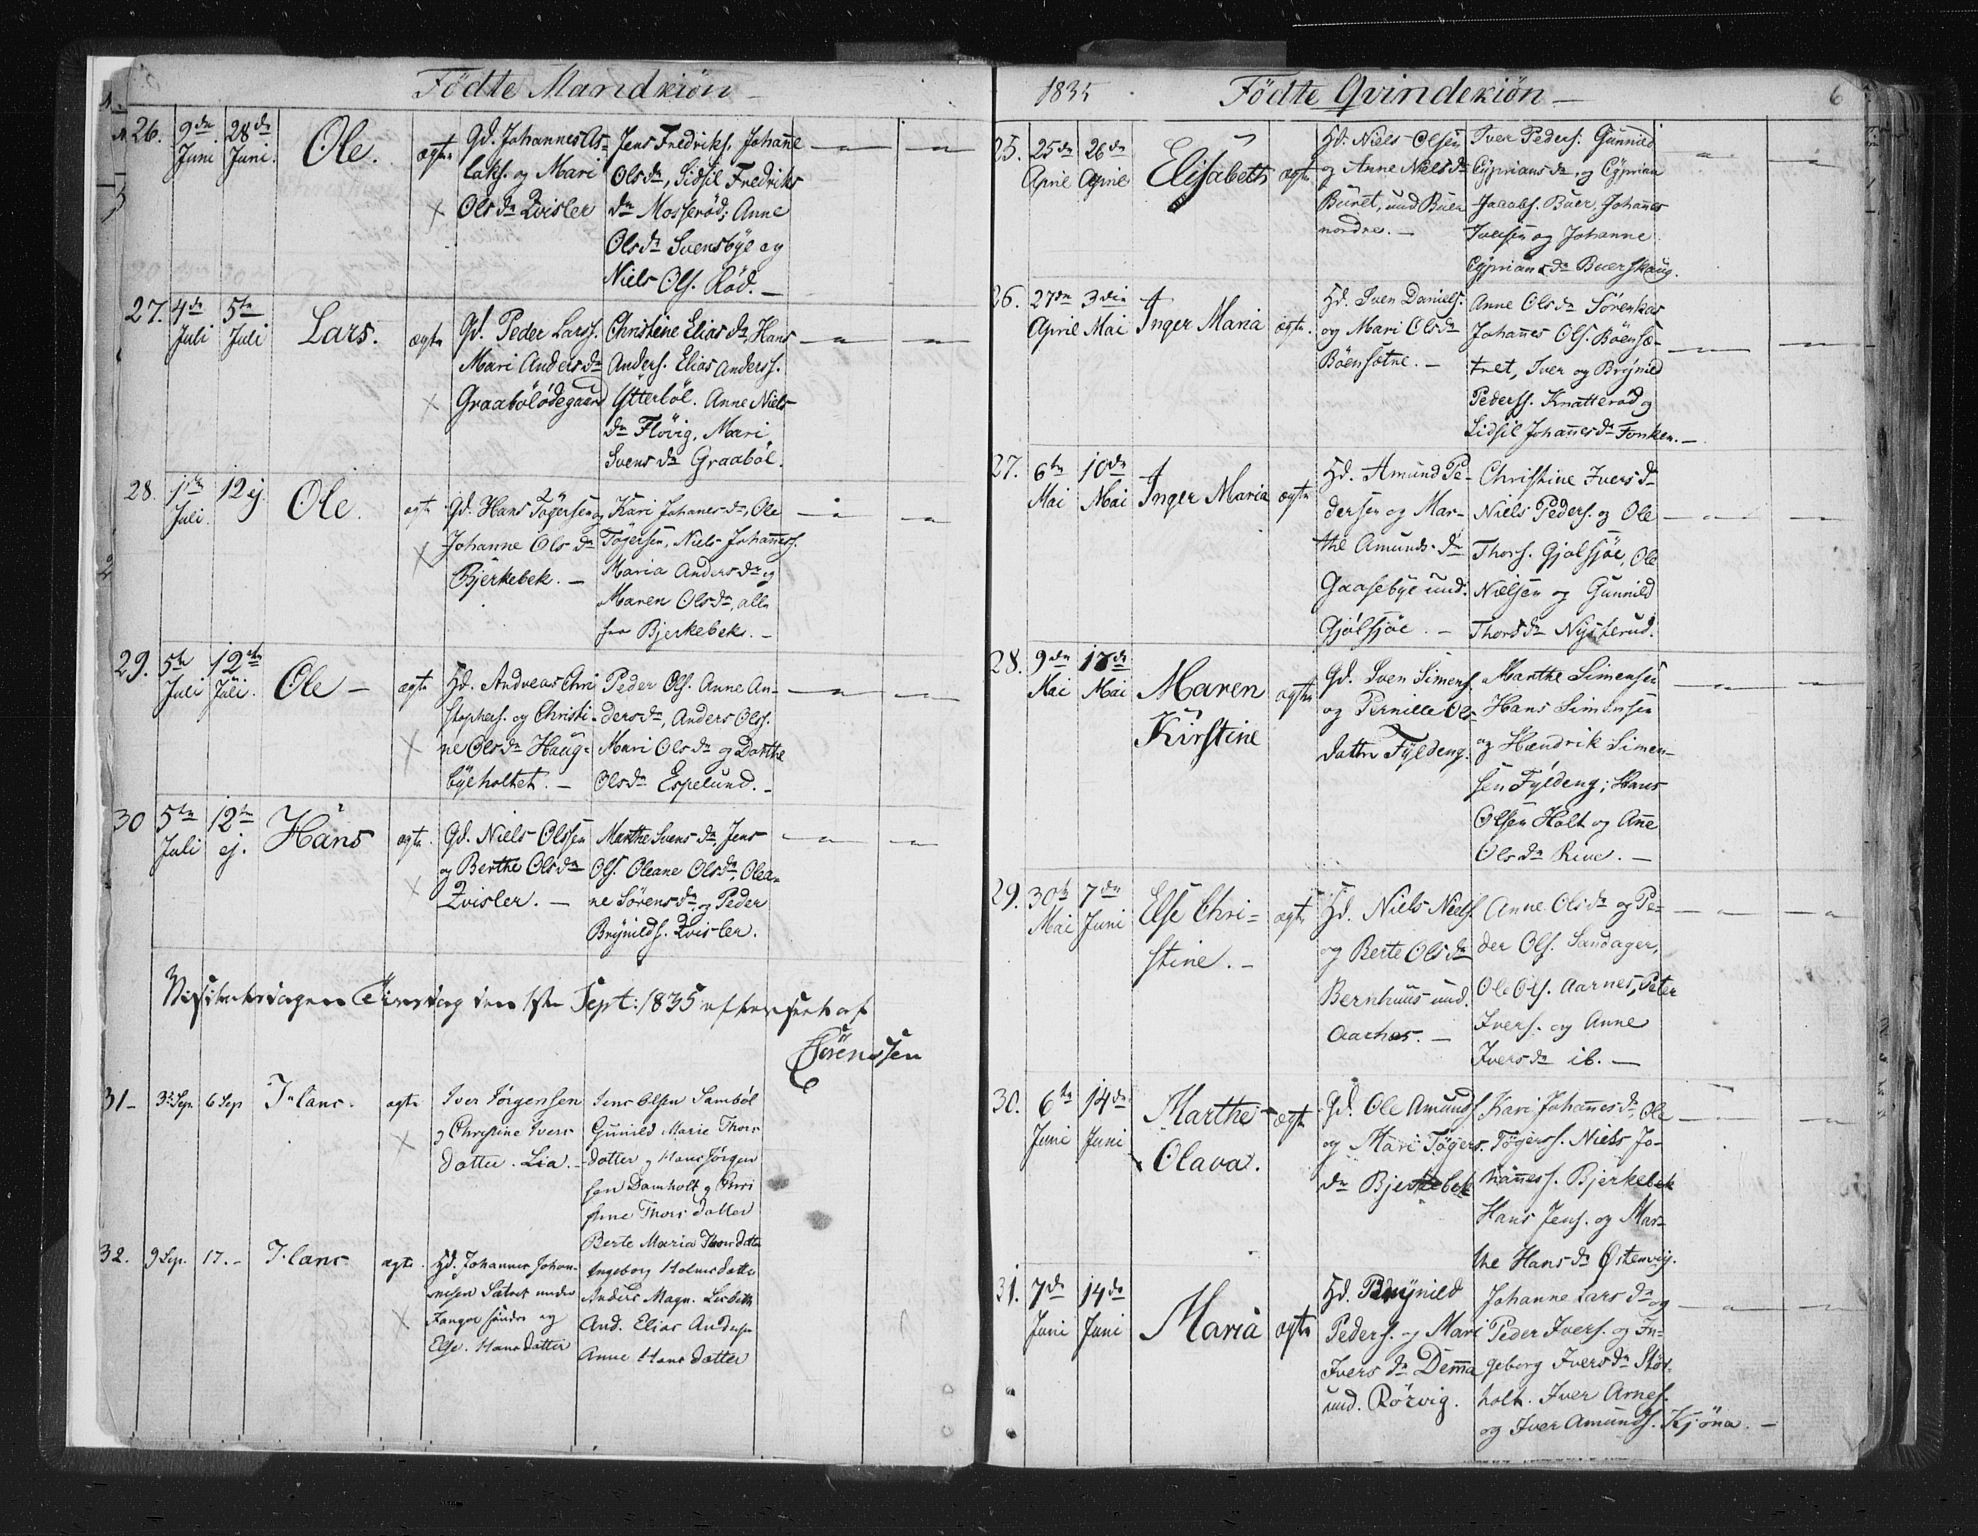 Födte Mandkiön –
26. 9de Juni 28de Juni. Ole. ægte
Gd. Johannes As-
laks. og Mari
Olsdr Qvisler
Jens Fredriks. Johañe
Olsdr, Sidsil Fredriks
dr Mosserød; Anne
Olsdr Svensbye og
Niels Ols. Rød. –
27. 4de Juli 5te Juli Lars. ægte
Gd. Peder Larss.
Mari Andersdr
Graabölödegaard
Christine Eliasdr, Hans
Anders. Elias Anderss.
Ytterböl. Anne Niels-
dr Flövig, Mari
Svensdr Graaböl.
28. 1ste Juli. 12 ej. Ole. ægte
Gd. Hans Tögersen og
Johanne Olsdr
Bjerkebek. –
Kari Johanesdr, Ole
Tögersen, Niels Johañess.
Maria Andersdr og
Maren Olsdr, alle
fra Bjerkebek. –
29. 5te Juli 12te Juli. Ole – ægte
Hd. Andreas Chri
stophers. og Christi-
ne Olsdr Haug-
byeholtet. –
Peder Ols. Anne An-
dersdr, Anders Olss.
Mari Olsdr og Dorthe
Olsdr Espelund. –
30 5te Juli 12te ej. Hans ægte.
Gd. Niels Olssen
og Berthe Olsdr
Qvisler. –
Marthe Svensdr, Jens
Ols. Oleane Olsdr, Olea-
ne Sörensdr og Peder
Brynilds. Qvisler.
Visitatsdagen Tirsdag den 1ste Sept: 1835 efterseet af
Sörenssen
31 – 3 Sep. 6 Sep Hans. ægte
Iver Jörgensen
og Christine Ivers
datter. Lia. –
Jens Olsen Samböl
Gunild Marie Thors
datter og Hans Jörgen
sen Damholt og Chri
stine Thorsdatter
Berte Maria Thorsdatter
32. 9 Sep. 17. – Hans ægte.
Hd. Johannes Johan-
nesen Sætret under
Fange söndre og
Else Hansdatter
Ingeborg Holmsdatter
Anders Magn. Lisbeth
And. Elias Anders
Anne Hansdatter
1835 Födte Qvindekiön – 6
25. 25de April 26de April Elisabeth ægte
Hd. Niels Olsen
og Anne Nielsdr
Büret, und Buer
nordre. –
Iver Peders. Gunnild
Cypriansdr, og Cyprian
Jacobs. Buer, Johannes
Iversen og Johanne
Cypriansdr Buerskaug.
26. 27de April 3die Mai Inger Maria ægte.
Hd. Sven Daniels.
og Mari Olsdr
Böensætne. –
Anne Olsdr Sörenkas
Johannes Ols. Böensæ-
tret, Iver og Brynild
Pederss. Knatteröd og
Sidsil Johannesdr Fonken. –
27. 6te Mai 10de Mai Inger Maria ægte
Hd. Amund Pe-
dersen og Mar-
the Amundsdr
Gaasebye und.
Gjölsjöe. –
Christine Iversdr
Niels Peders. og Ole
Thors. Gjolsjöe, Ole
Nielsen og Gunnild
Thorsdr Nysterud.
28. 9de Mai 17de Mai Maren Kirstine ægte
Gd. Sven Simens.
og Pernille Ols-
datter Fyldeng.
Marthe Simensen
Hans Simensen
og Hendrik Simen-
sen Fyldeng; Hans
Olsen Holt og Añe
Olsdr Rive. –
29. 30te Mai 7de Juni Else Chri-
stine. – ægte
Hd. Niels Niels.
og Berte Olsdr
Bernhuus und.
Aarnes. –
Anne Olsdr og Pe-
der Ols. Sandager,
Ole Ols. Aarnes, Peter
Ivers. og Anne
Iversdr ib. –
30. 6te Juni 14de Juni Marthe
Olava. ægte
Gd. Ole Amunds.
og Mari Tögers.
dr Bjerkebek
Kari Johañesdr, Ole
Tögerss. Niels Jo-
hañess. Bjerkebek
Hans Jens. og Mar-
the Hansdr Östenvig.
31. 7de Juni 14de Juni Maria ægte
Hd. Brynild
Peders. og Mari
Iversdr Demma
und. Rörvig.
Johanne Larsdr og
Peder Ivers. og In-
geborg Iversdr Stör-
holt. Iver Arnes.
og Iver Amunds. Kjöna. –